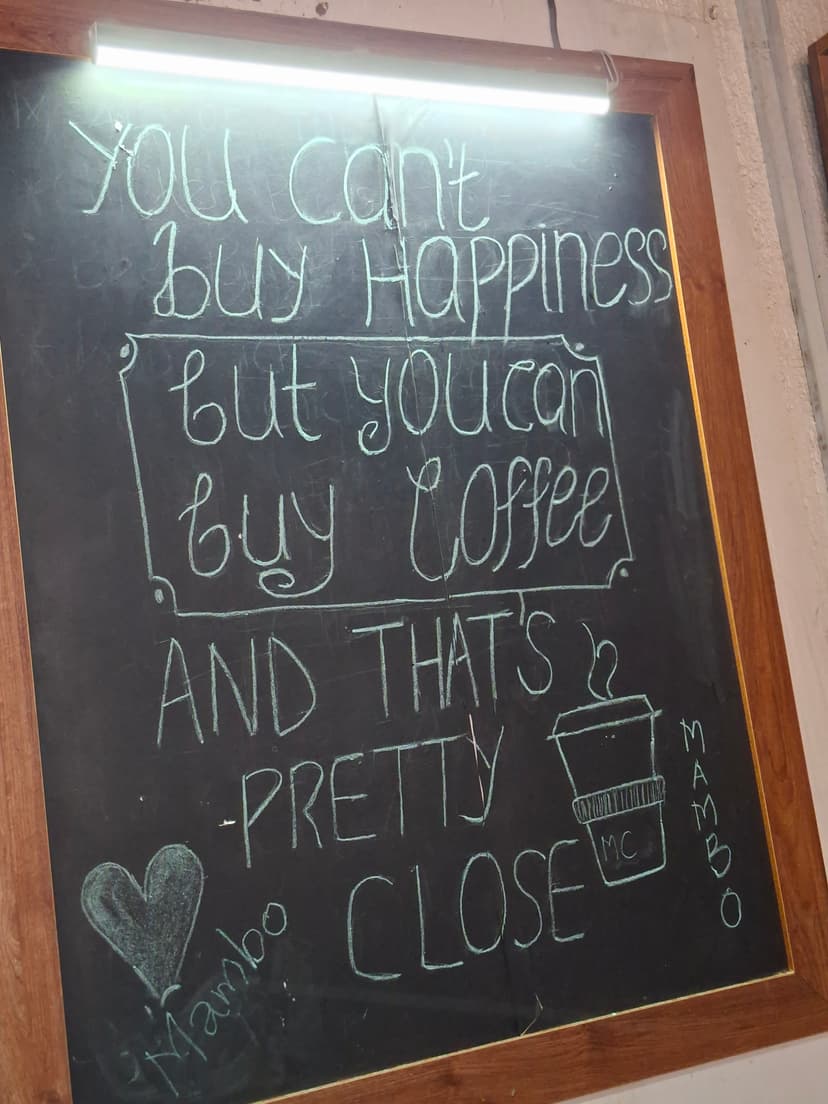 You can't
buy Happiness
but you can
buy Coffee
AND THAT'S
PRETTY
CLOSE
MC
MAMBO
Mambo